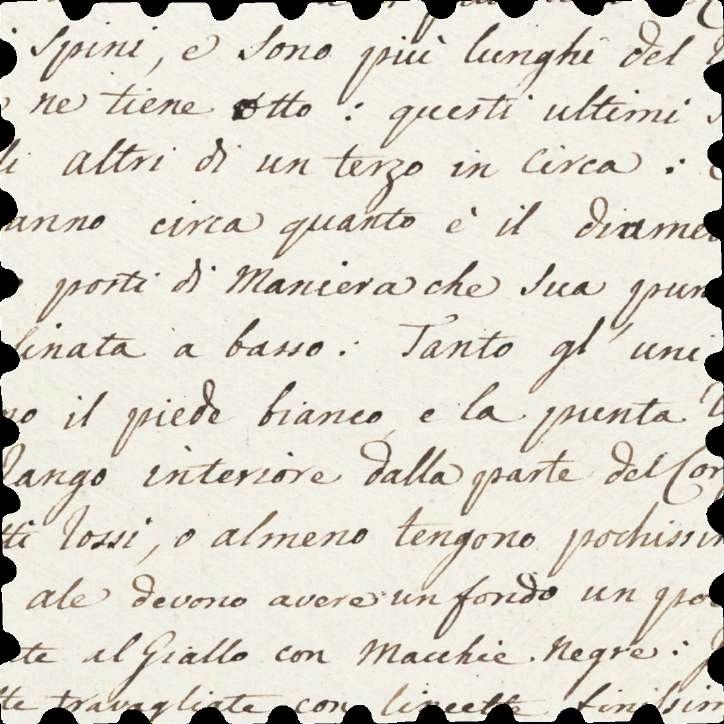 spini, e sono più lunghi del
ne tiene otto : questi ultimi
altri di un terzo in circa :
anno circa quanto è il diame
posti di Maniera che sua pun
linata a basso : Tanto gl' uni
no il piede bianco, e la punta
Rango interiore dalla parte del Cor
tti rossi, o almeno tengono pochissi
ale devono avere un fondo un poc
te al Giallo con Macchie Negre :
tte travagliate con linette finissim